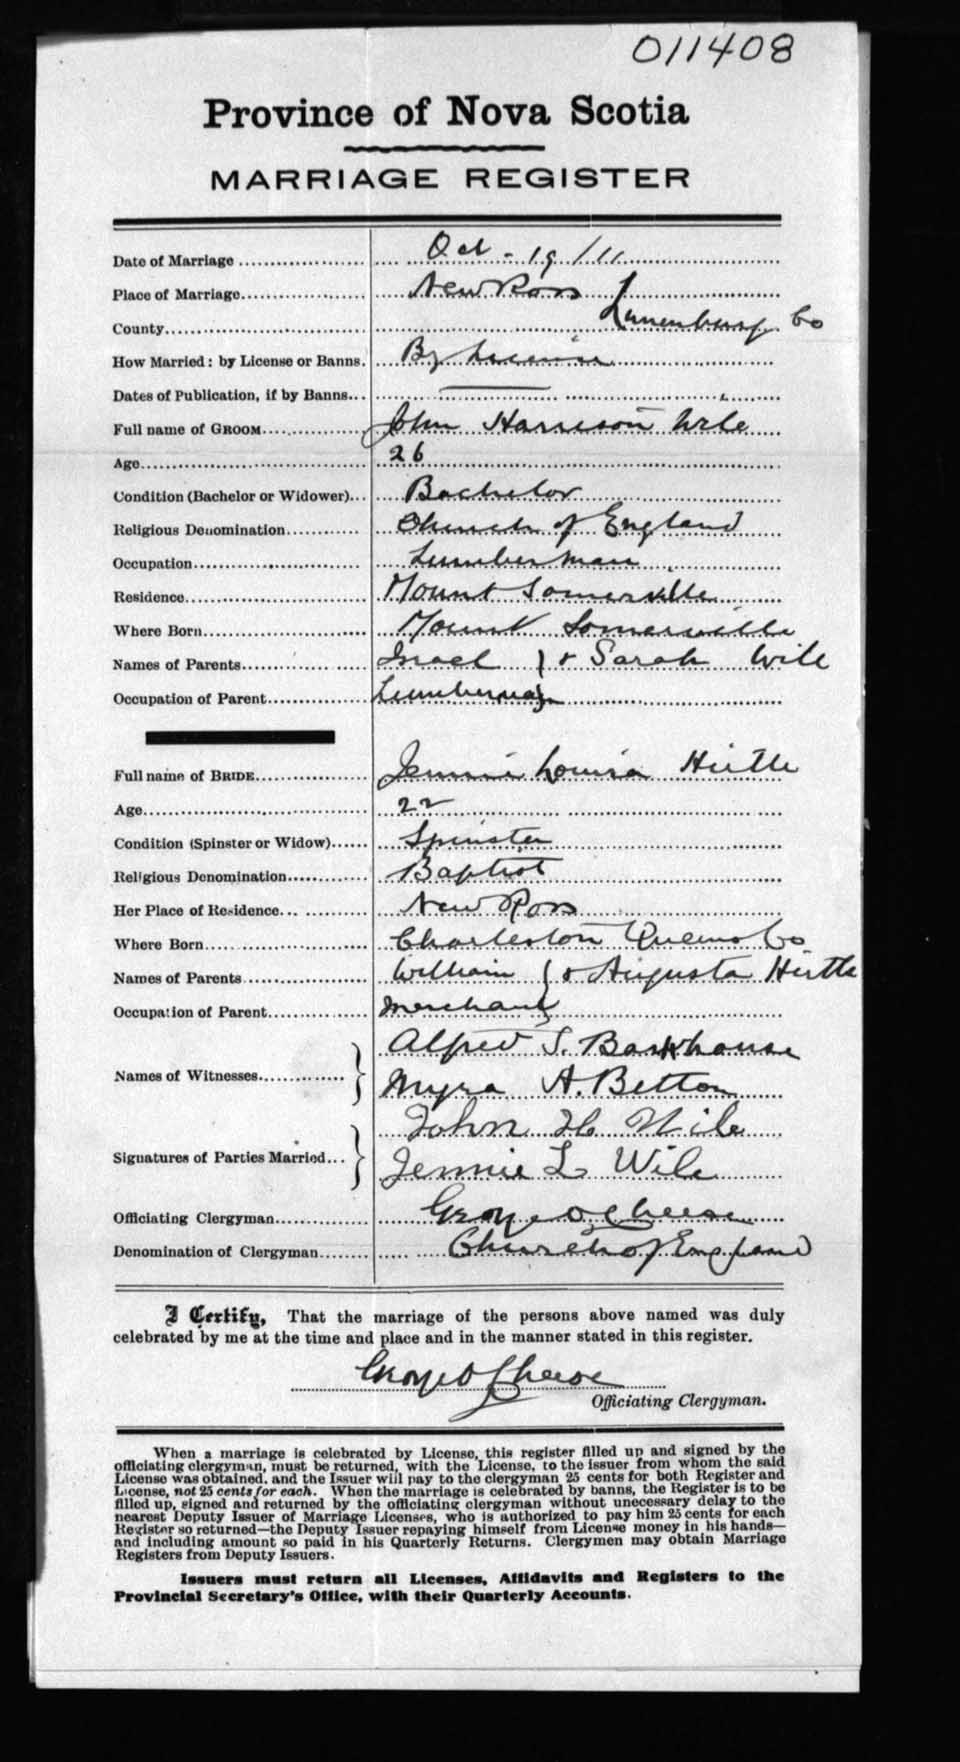 011408
Province of Nova Scotia
MARRIAGE REGISTER
Date of Marriage Oct - 19 / 11
Place of Marriage New Ross
County Lunenburg Co
How Married: by License or Banns. By License
Dates of Publication, if by Banns
Full name of GROOM John Harrison Wile
Age 26
Condition (Bachelor or Widower) Bachelor
Religious Denomination Church of England
Occupation Lumberman
Residence Mount Somerville
Where Born Mount Somerville
Names of Parents Israel } & Sarah Wile
Occupation of Parent Lumberman }
Full name of BRIDE Jennie Louisa Hirtle
Age 22
Condition (Spinster or Widow) Spinster
Religious Denomination Baptist
Her Place of Residence New Ross
Where Born Charleston Queens Co
Names of Parents William } & Augusta Hirtle
Occupation of Parent Merchant }
Alfred S. Barkhouse
Names of Witnesses }
Myra A. Betton
John H Wile
Signatures of Parties Married }
Jennie L Wile
Officiating Clergyman George O Cheese
Denomination of Clergyman Church of England
I Certify, That the marriage of the persons above named was duly
celebrated by me at the time and place and in the manner stated in this register.
George O Cheese
Officiating Clergyman.
When a marriage is celebrated by License, this register filled up and signed by the
officiating clergyman, must be returned, with the License, to the issuer from whom the said
License was obtained, and the Issuer will pay to the clergyman 25 cents for both Register and
License, not 25 cents for each. When the marriage is celebrated by banns, the Register is to be
filled up, signed and returned by the officiating clergyman without unnecessary delay to the
nearest Deputy Issuer of Marriage Licenses, who is authorized to pay him 25 cents for each
Register so returned—the Deputy Issuer repaying himself from License money in his hands—
and including amount so paid in his Quarterly Returns. Clergymen may obtain Marriage
Registers from Deputy Issuers.
Issuers must return all Licenses, Affidavits and Registers to the
Provincial Secretary's Office, with their Quarterly Accounts.